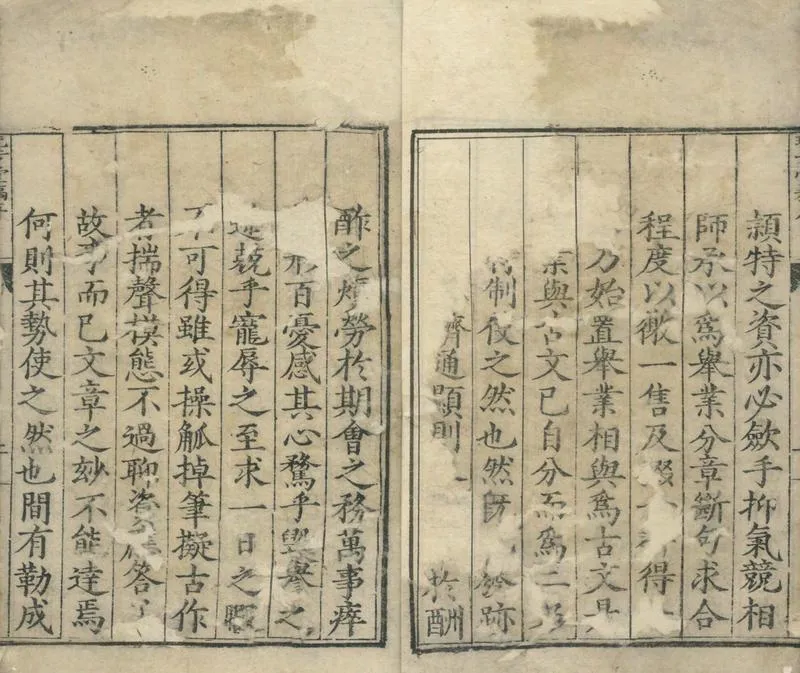 頴特之資亦必歛手抑氣競相
師承以爲舉業分章斷句求合
程度以徼一售及得
乃始置舉業相與爲古文
業與古文已自分而爲二
制使之然也然跡
濟通顯則於酬
酢之煩勞於期會之務萬事瘁
形百憂感其心騖乎毀譽之
競乎寵辱之至求一日之暇
不可得雖或操觚掉筆擬古作
者揣聲模態不過聊資應答
故事而已文章之玅不能達焉
何則其勢使之然也間有勒成